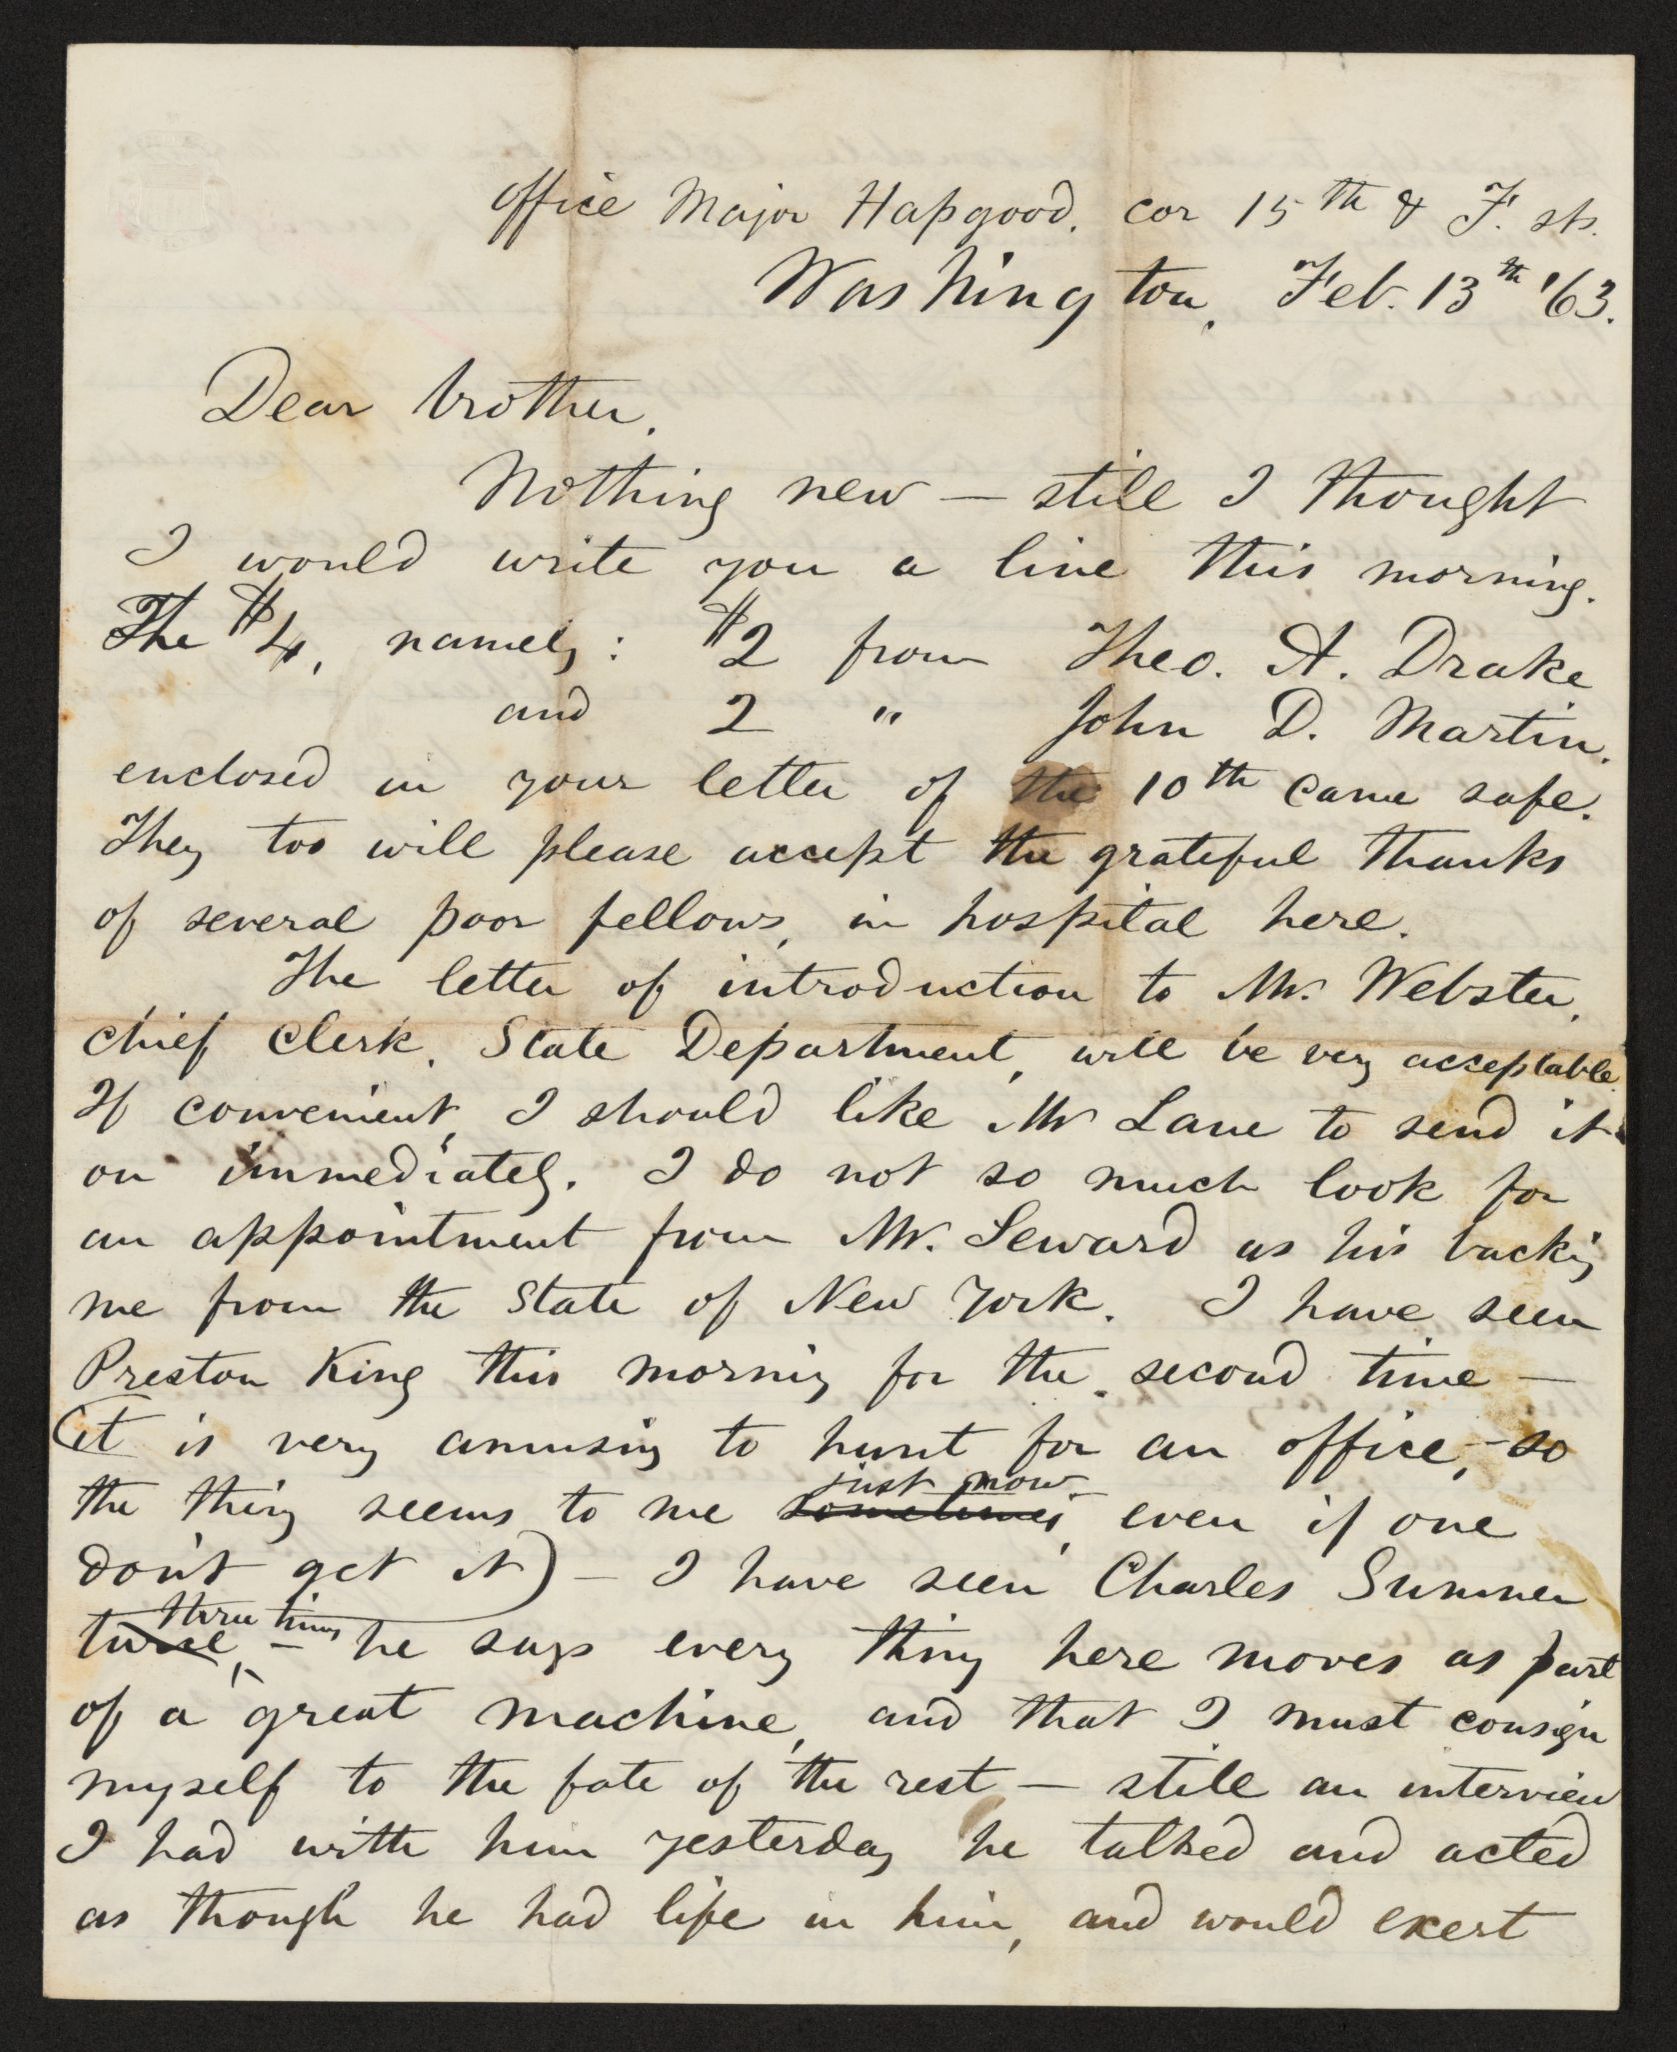 Office Major Hapgood. cor 15th & F. sts.
Washington, Feb. 13th '63.
Dear brother,
Nothing new — still I thought
I would write you a line this morning.
The $4, namely: $2 from Theo. A. Drake
and 2 " John D. Martin,
enclosed in your letter of the 10th came safe.
They too will please accept the grateful thanks
of several poor fellows, in hospital here.
The letter of introduction to Mr. Webster,
chief clerk, State Department, will be very acceptable.
If convenient, I should like Mr Lane to send it
on immediately. I do not so much look for
an appointment from Mr. Seward as his backing
me from the State of New York. I have seen
Preston King this morning for the second time —
(it is very amusing to hunt for an office, — so
the thing seems to me sometimes just now, even if one
don't get it) — I have seen Charles Sumner
twice, three times — he says every thing here moves as part
of a great machine, and that I must consign
myself to the fate of the rest — still an interview
I had with him yesterday he talked and acted
as though he had life in him, and would exert